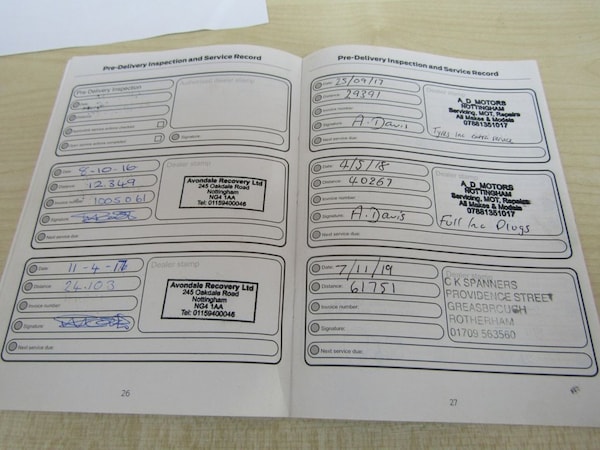 Pre-Delivery Inspection and Service Record
Pre Delivery Inspection
Date:
Signature:
Date: 8-10-16
Dealer stamp
Distance: 12.349
Invoice number: 1005.0.61
Signature:
Avondale Recovery Ltd
245 Oakdale Road
Nottingham
NG4 1AA
Tel: 01159400046
Next service due:
Date: 11-4-17
Dealer stamp
Distance: 24.103
Invoice number:
Signature:
Avondale Recovery Ltd
245 Oakdale Road
Nottingham
NG4 1AA
Tel: 01159400046
Next service due:
26
Pre-Delivery Inspection and Service Record
Date: 25/09/17
Distance: 29391
Invoice number:
Signature: A. Davis
Dealer stamp
A. D. MOTORS
NOTTINGHAM
Servicing, MOT, Repairs
All Makes & Models
07881351017
Next service due:
Date: 4/5/18
Distance: 40267
Invoice number:
Signature: A. Davis
Dealer stamp
A. D. MOTORS
NOTTINGHAM
Servicing, MOT, Repairs
All Makes & Models
07881351017
Full Inc Plugs
Next service due:
Date: 7/11/19
Distance: 61751
Invoice number:
Signature:
Dealer stamp
C K SPANNERS
PROVIDENCE STREET
GREASBROUGH
ROTHERHAM
01709 563560
Next service due:
27